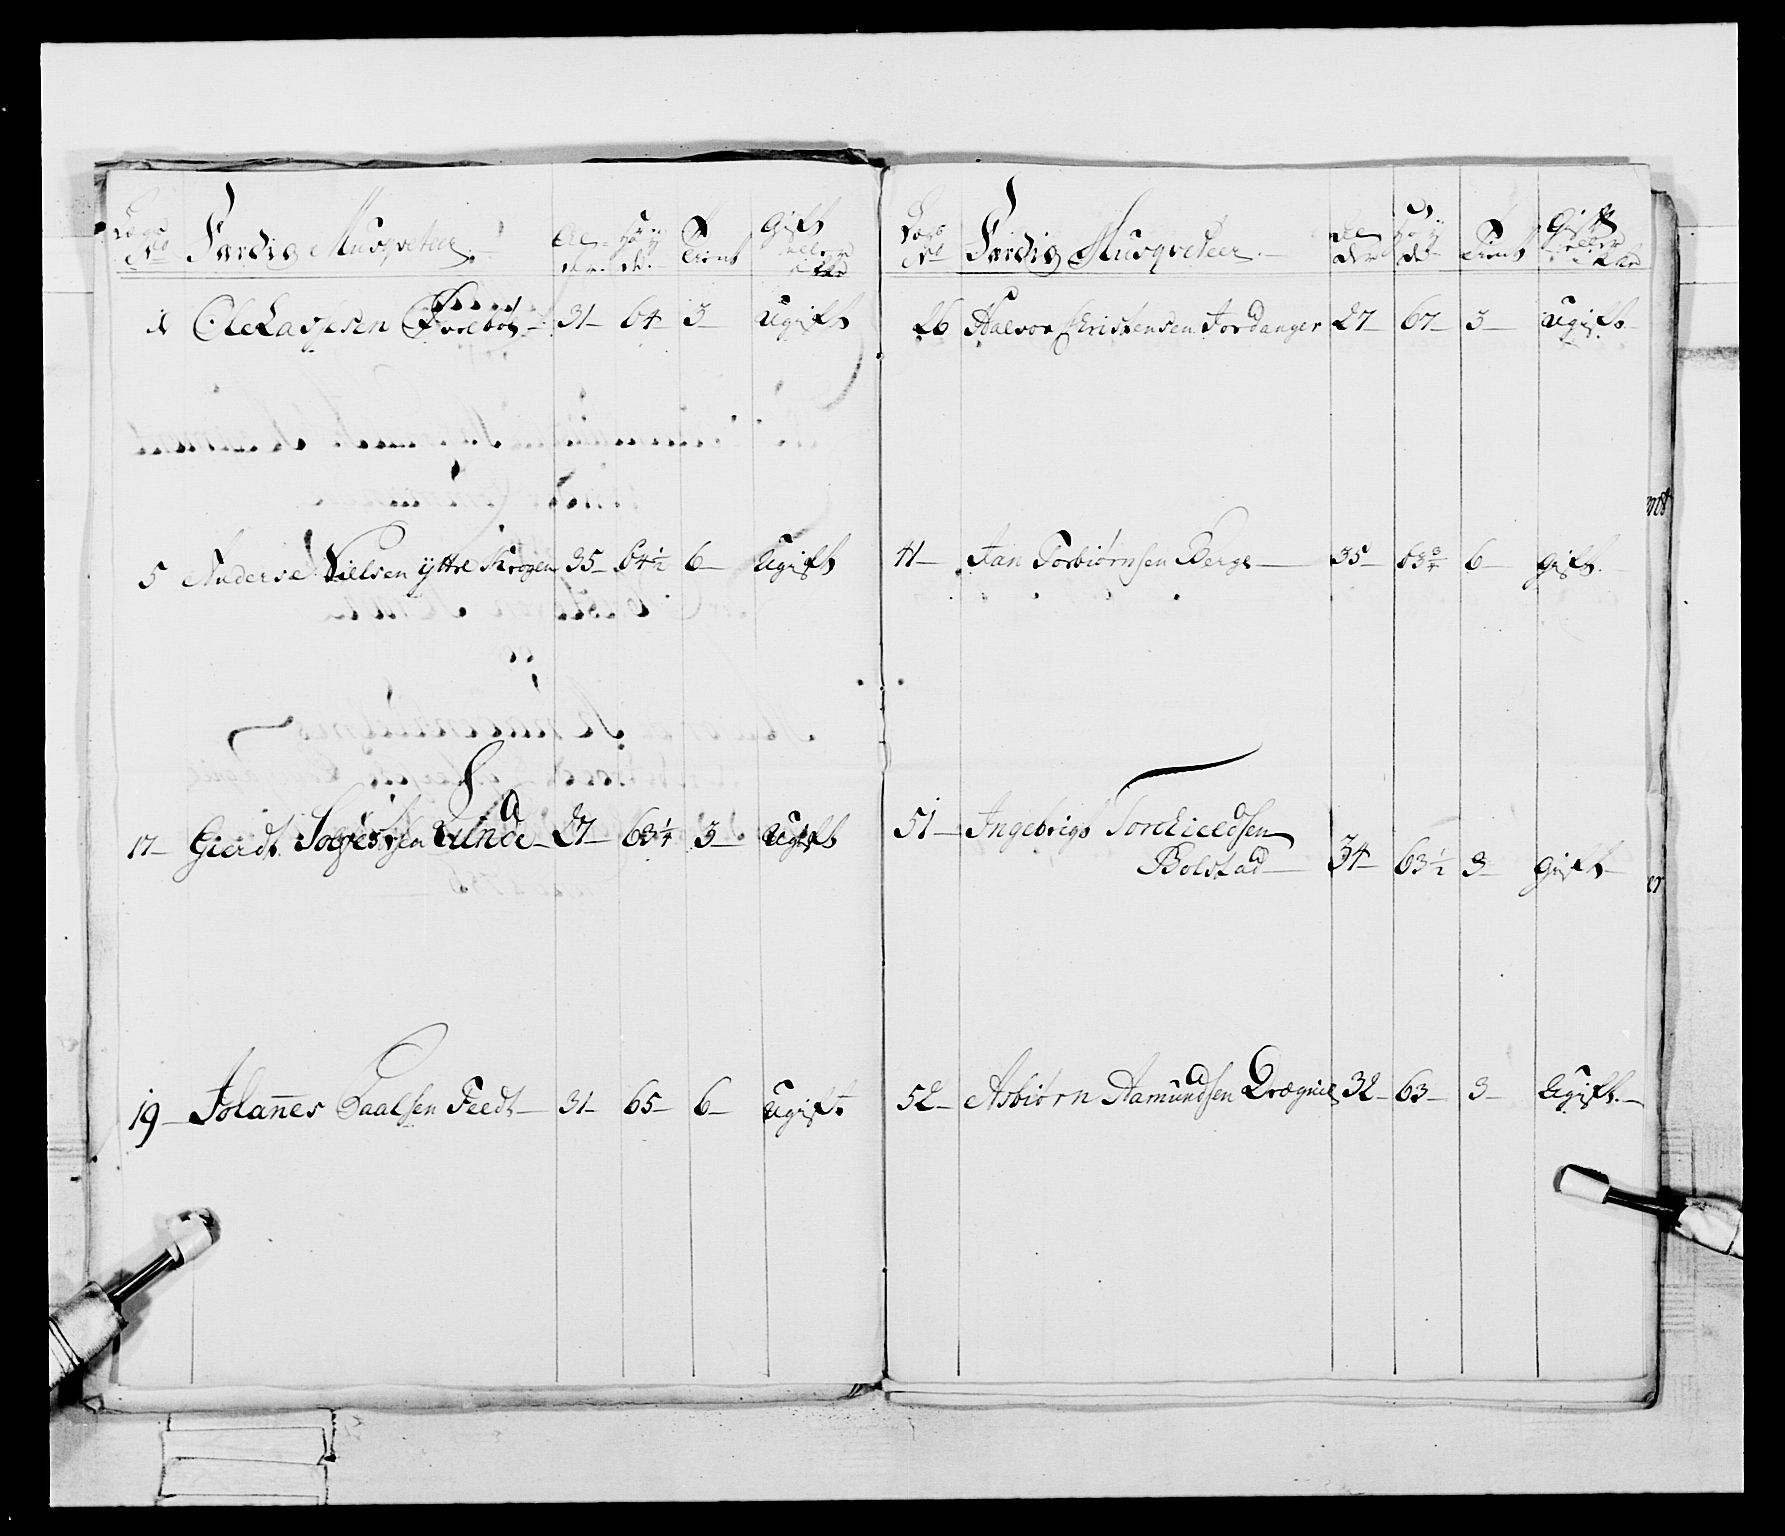 Lægs No Færdig Musqveteer. Al- der. Høy- de. Tient Gift eller ikke
1 Ole Lassesen 31 64 3 Ugift
5 Anders Nielsen ÿttre Krogen 35 64 1/2 6 Ugift
17 Gierdt Solfestsen Lunde 27 63 1/4 3 Ugift
19 Johañes Paalsen Feedt 31 65 6 Ugift
Lægs No Færdig Musqveteer. Al der Høy de Tient Gift eller ikke
26 Halvor Christensen Jordanger 27 67 3 Ugift
41 Jan Torbiørnsen Berge 35 63 3/4 6 gift.
51 Ingebrigt Torckieldsen
Bolstad 34 63 1/2 3 gift
52 Asbiørn Aamundsen Drægnie 32 63 3 Ugift.